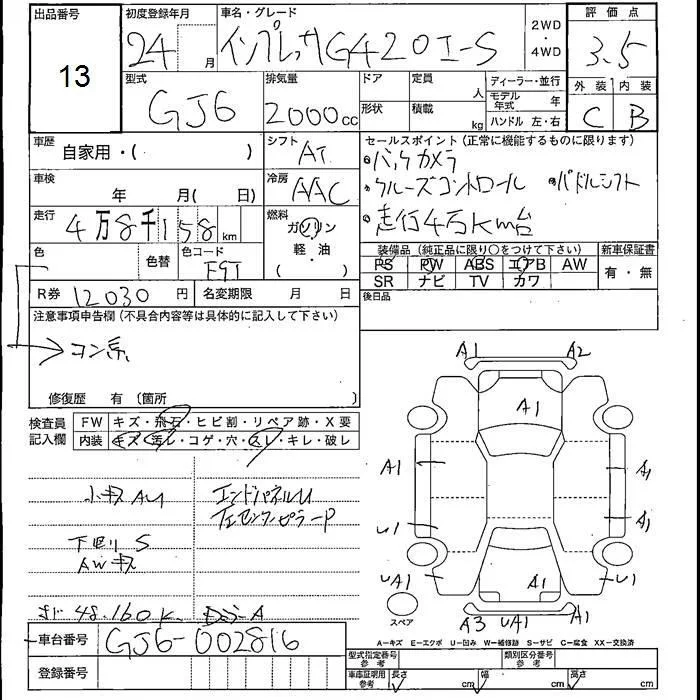 出品番号
13
初度登録年月
24 月
車名・グレード
インプレッサG4 2.0I-S
2WD
・
4WD
評価点
3.5
外装 内装
C B
型式
GJ6
排気量
2000cc
ドア
形状
定員 人
積載 kg
ディーラー・並行
モデル年式 年
ハンドル 左・右
車歴
自家用・( )
シフト
AT
セールスポイント(正常に機能するものに限ります)
・バックカメラ
・クルーズコントロール ・パドルシフト
・走行4万km台
車検
年 月(日)
冷房
AAC
走行
4万8千158km
燃料
ガソリン
軽・油
( )
色
色替
色コード
装備品(純正品に限り○をつけて下さい)
PS PW ABS エアB AW
SR ナビ TV カワ
新車保証書
有・無
R券 12030円
名変期限 月 日
後日品
注意事項申告欄(不具合内容等は具体的に記入して下さい)
コン系
修復歴 有〔箇所 〕
検査員記入欄
FW キズ・飛石・ヒビ割・リペア跡・X要
内装 キズ・汚レ・コゲ・穴・スレ・キレ・破レ
小キズAU
エンドパネルU
下回りS
AWキズ
左センターピラーP
48.160K
車台番号
GJ6-002816
登録番号
A1 A2
A1
A1 A1
U1 A1
UA1 A1 U1
A3 UA1 A1
スペア
A─キズ E─エクボ U─凹み W─補修跡 S─サビ C─腐食 XX─交換済
型式指定番号 参考
類別区分番号 参考
車庫証明用 参考
長さ cm 幅 cm 高さ cm